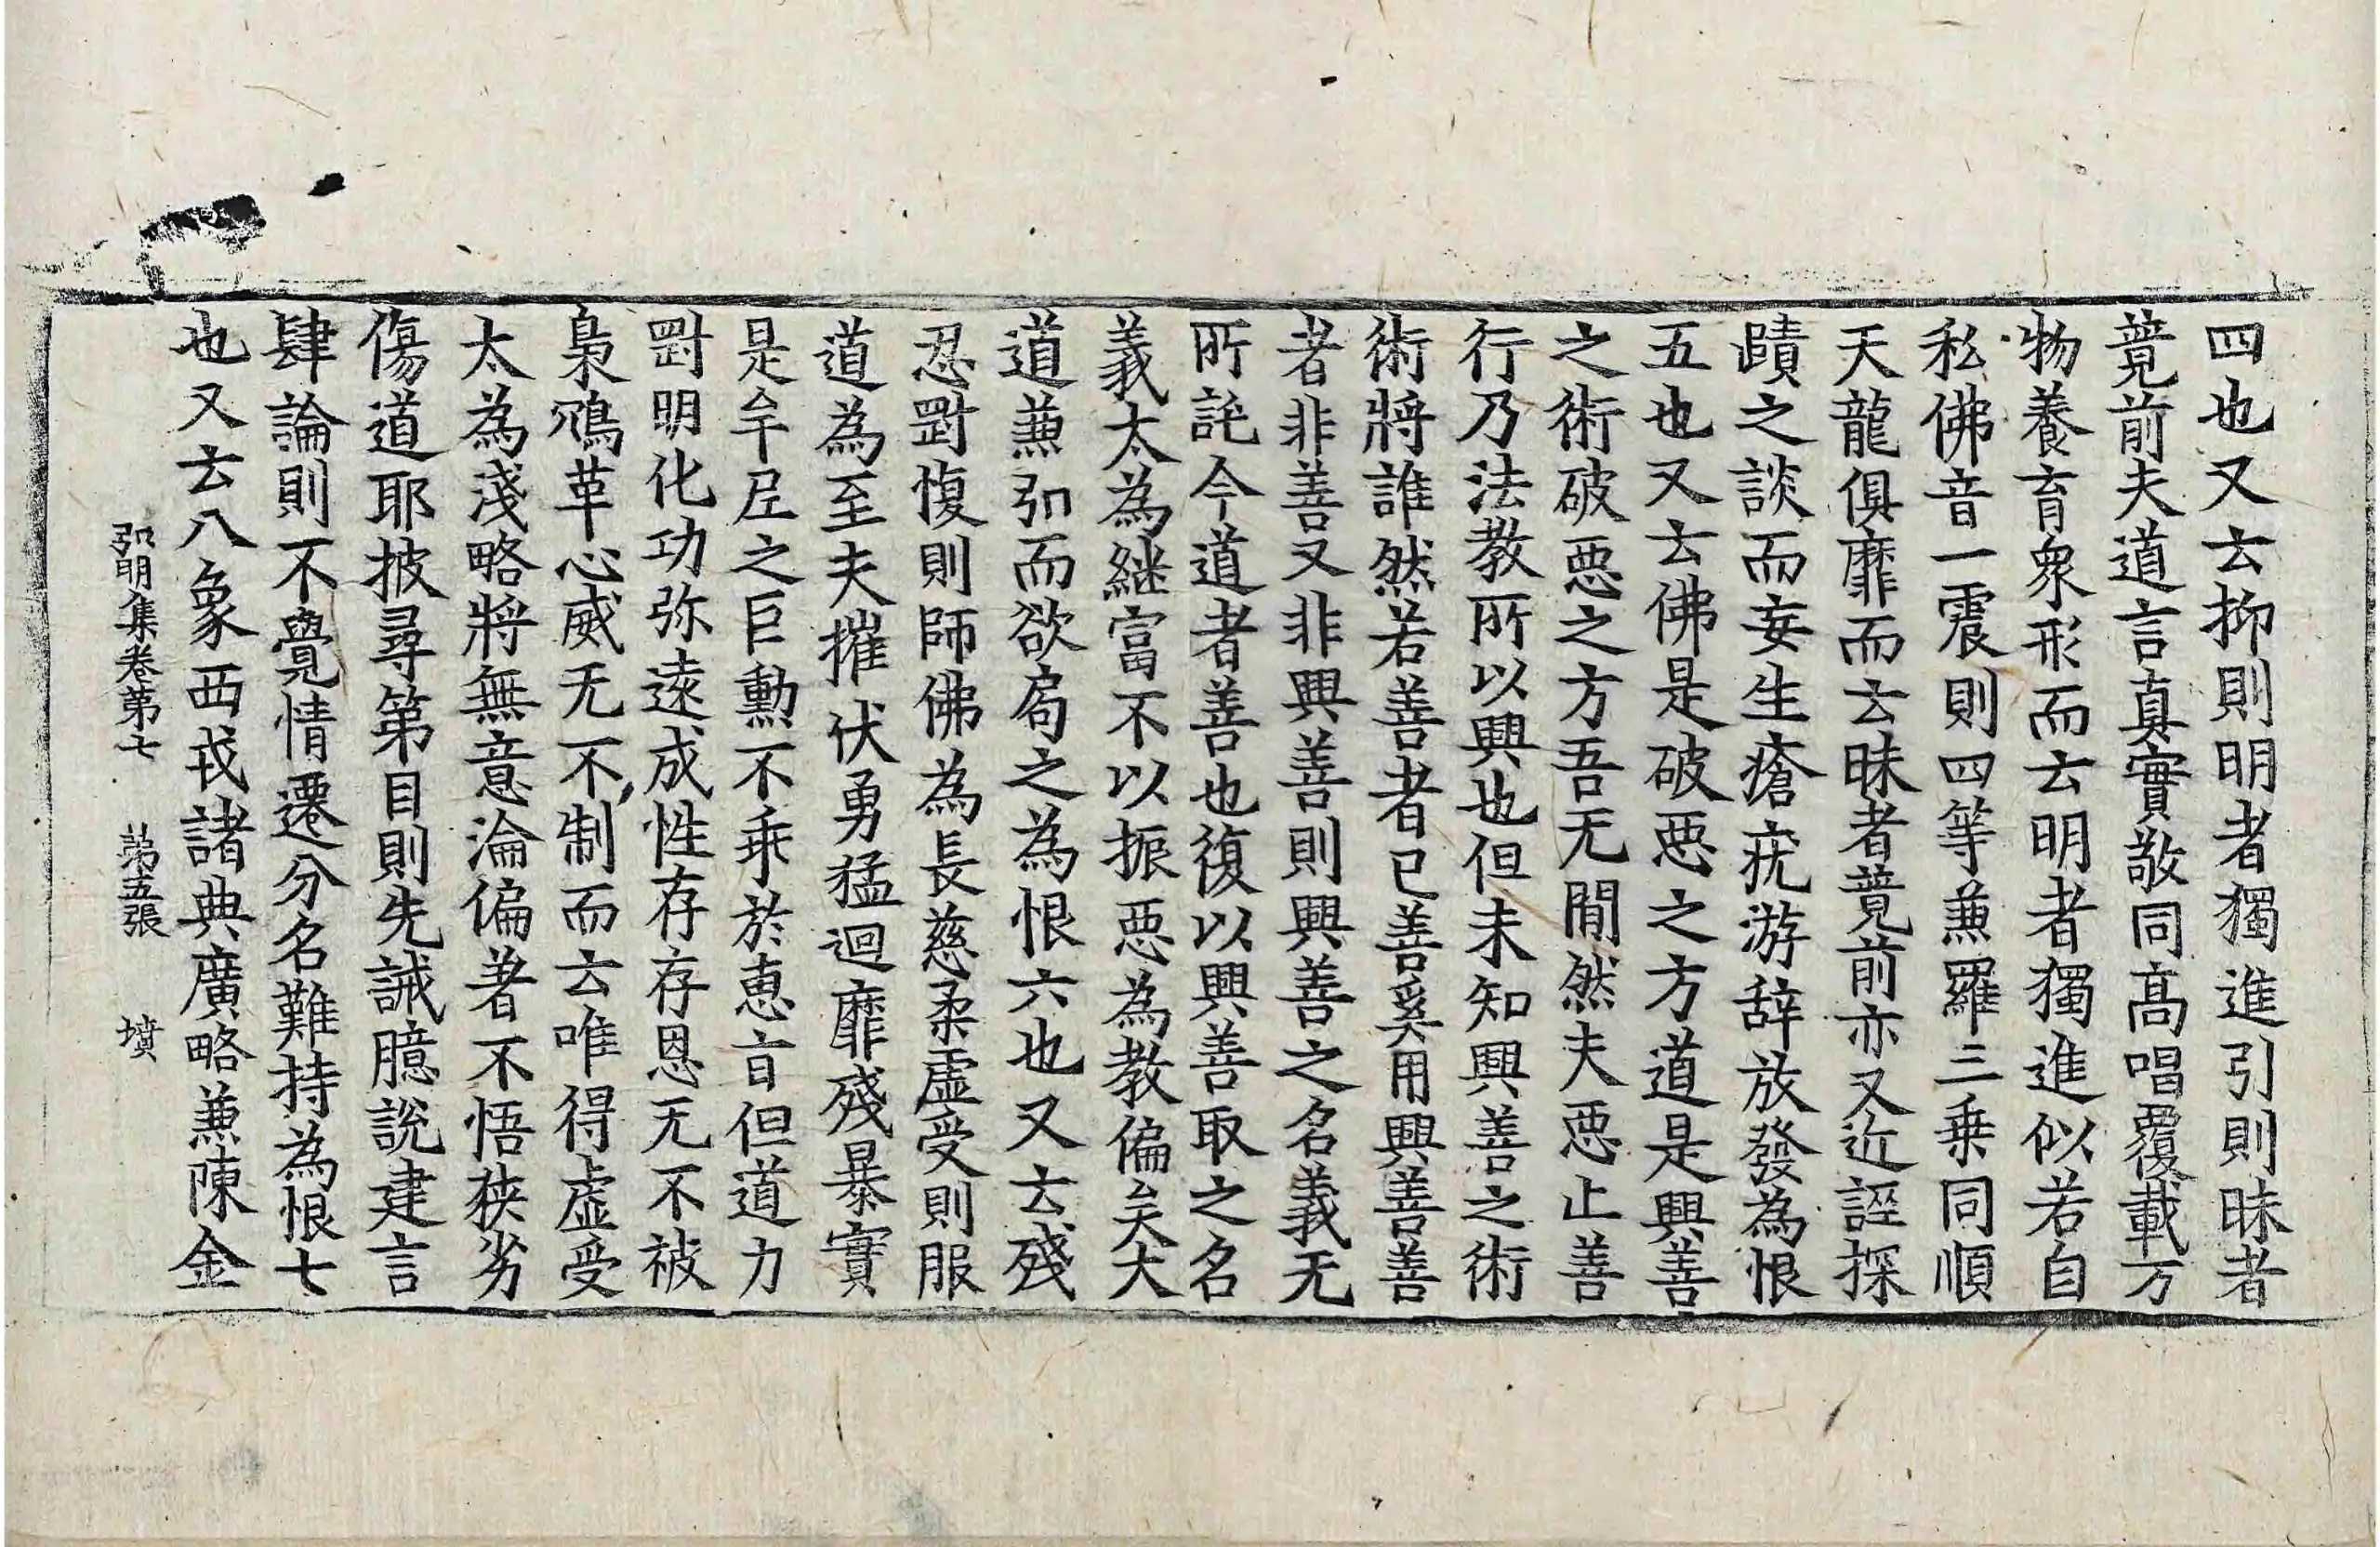 四也又云抑則明者獨進引則昧者
竟前夫道言真實敬同高唱覆載万
物養育衆形而云明者獨進似若自
私佛音一震則四等兼羅三乗同順
天龍俱靡而云昧者竟前亦又近誣探
賾之談而妄生瘡疣游辞放發為恨
五也又云佛是破惡之方道是興善
之術破惡之方吾无間然夫惡止善
行乃法教所以興也但未知興善之術
術將誰然若善者已善奚用興善善
者非善又非興善則興善之名義无
所託今道者善也復以興善取之名
義太為継富不以振惡為教偏矣大
道兼弘而欲局之為恨六也又云殘
忍罰愎則師佛為長慈柔虛受則服
道為至夫摧伏勇猛迴靡殘暴實
是牟尼之巨勳不乖於恵旨但道力
罰明化功弥遠成性存存恩无不被
梟鴆革心威无不制而云唯得虛受
太為淺略將無意淪偏著不悟狹劣
傷道耶披尋第目則先誡臆說建言
肆論則不覺情遷分名難持為恨七
也又云八象西戎諸典廣略兼陳金
弘明集卷第七 第五張 墳